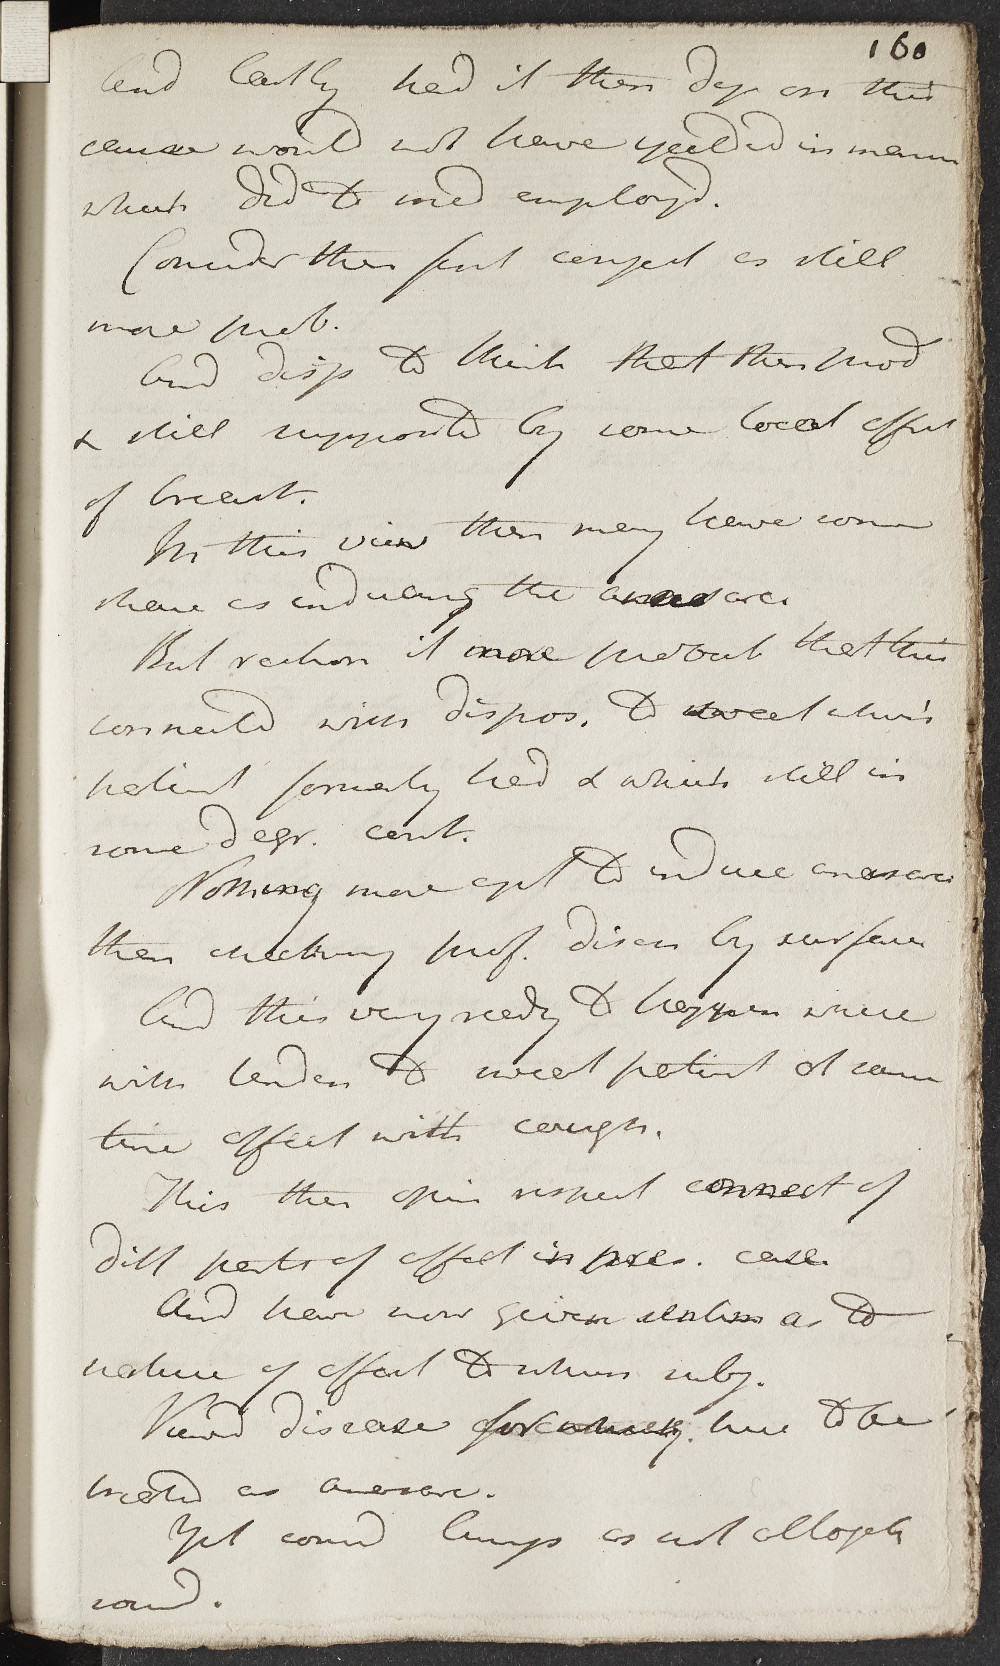 160
And lastly had it then dep on this
cause would not have yeilded in mann
which did to med employd.
Consider then first conject as still
more prob.
And disp to think that then prod
& still supported by some local affect
of breast.
In this view then may have som
share as inducing the anasarc.
But reckon it more probab that this
connected with dispos. to sweat which
patient formerly had & which still in
some degr. cont.
Nothing more apt to induce anasarc
then checking prof. disch by surface
And this very ready to happen where
with tenden to sweat patient at sam
time affect with cough.
This then opin respect connect of
diff parts of affect in pres. case.
And have now given as to
nature of affect to whom subj.
View'd disease here to be
treated as anasarc.
Yet consid lungs as not altogeth
sound.